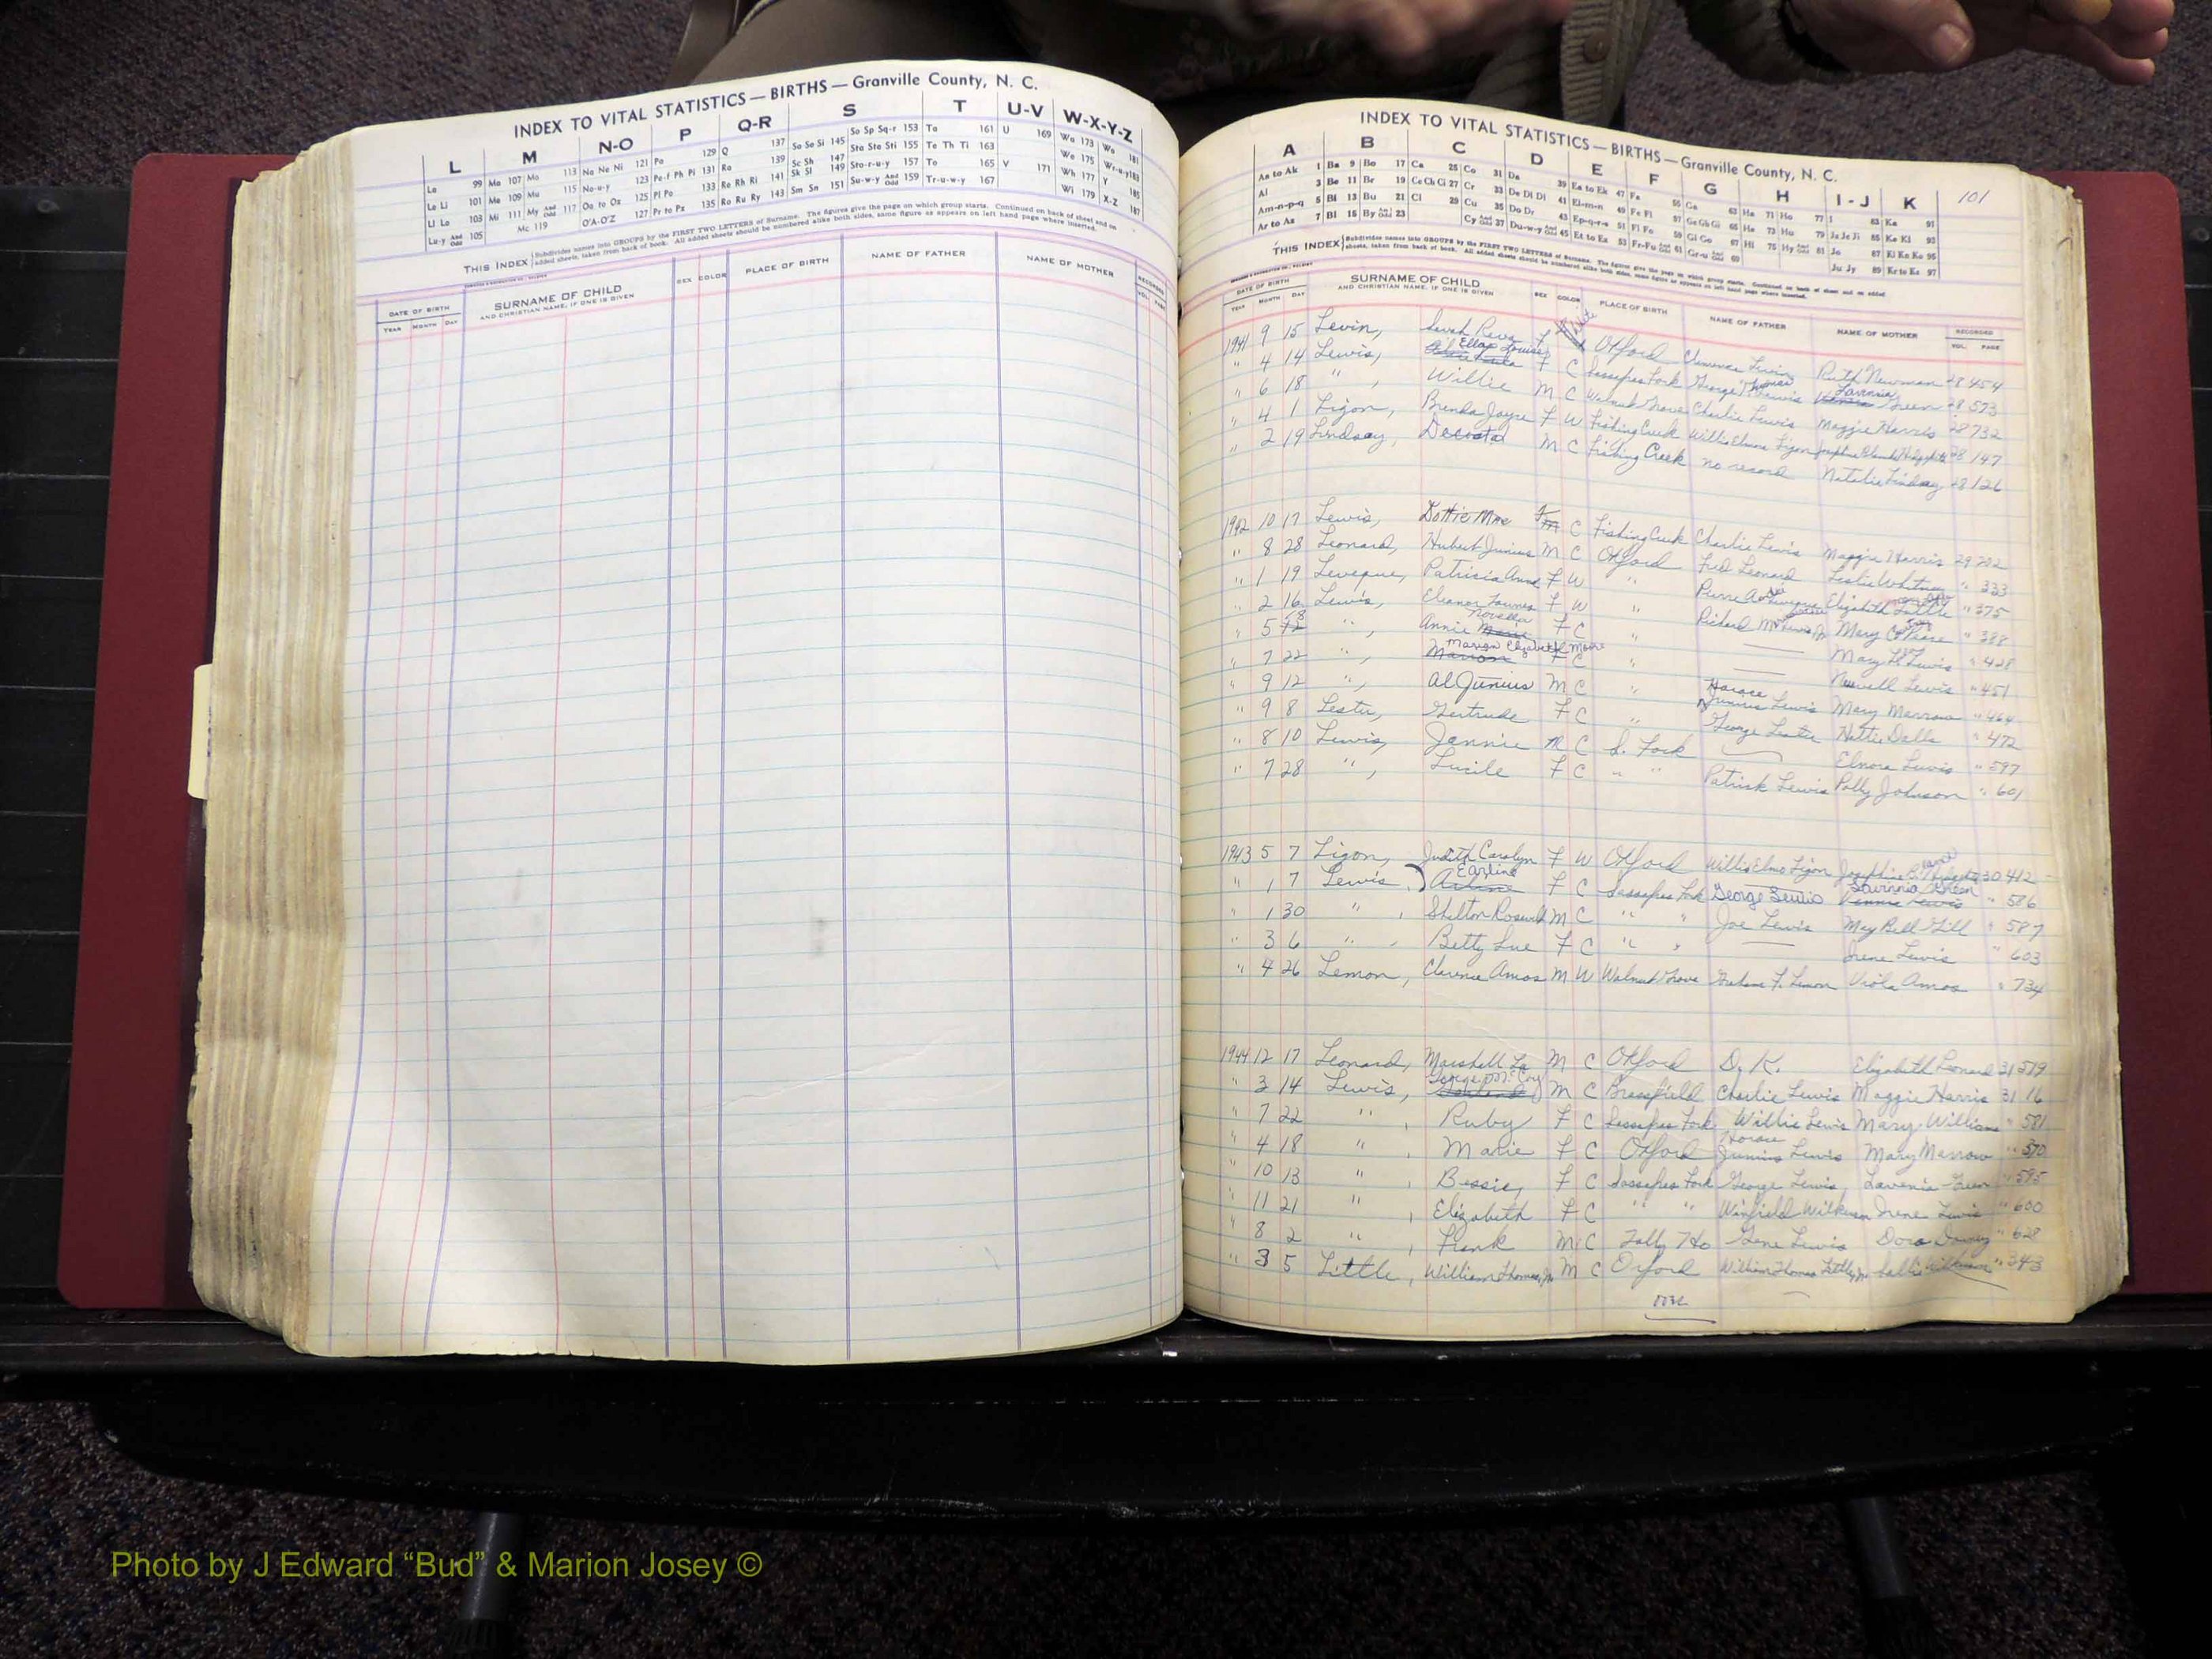 INDEX TO VITAL STATISTICS — BIRTHS — Granville County, N. C.
L M N-O P Q-R S T U-V W-X-Y-Z
La 99 Ma 107 Mo 113 Na Ne Ni 121 Pa 129 Q 137 Sa Se Si 145 So Sp Sq-r 153 Ta 161 U 169 Wa 173 Wo 181
Le Li 101 Me 109 Mu 115 No-u-y 123 Pe-f Ph Pi 131 Ra 139 Sc Sh 147 Sta Ste Sti 155 Te Th Ti 163 We 175 Wr-u-y 183
Ll Lo 103 Mi 111 My And Odd 117 Oa to Oz 125 Pl Po 133 Re Rh Ri 141 Sk Sl 149 Sto-r-u-y 157 To 165 V 171 Wh 177 Y 185
Lu-y And Odd 105 Mc 119 O'A-O'Z 127 Pr to Pz 135 Ro Ru Ry 143 Sm Sn 151 Su-w-y And Odd 159 Tr-u-w-y 167 Wi 179 X-Z 187
THIS INDEX Subdivides names into GROUPS by the FIRST TWO LETTERS of Surname. The figures give the page on which group starts. Continued on back of sheet and on
added sheets, taken from back of book. All added sheets should be numbered alike both sides, same figure as appears on left hand page where inserted.
DATE OF BIRTH SURNAME OF CHILD SEX COLOR PLACE OF BIRTH NAME OF FATHER NAME OF MOTHER RECORDED
YEAR MONTH DAY AND CHRISTIAN NAME, IF ONE IS GIVEN VOL. PAGE
INDEX TO VITAL STATISTICS — BIRTHS — Granville County, N. C.
101
A B C D E F G H I-J K
Aa to Ak 1 Ba 9 Bo 17 Ca 25 Co 31 Da 39 Ea to Ek 47 Fa 55 Ga 63 Ha 71 Ho 77 I 83 Ka 91
Al 3 Be 11 Br 19 Ce Ch Ci 27 Cr 33 De Di Dl 41 El-m-n 49 Fe Fi 57 Ge Gh Gi 65 He 73 Hu 79 Ja Je Ji 85 Ke Ki 93
Am-n-p-q 5 Bi 13 Bu 21 Cl 29 Cu 35 Do Dr 43 Ep-q-r-s 51 Fl Fo 59 Gl Go 67 Hi 75 Hy And Odd 81 Jo 87 Kl Kn Ko 95
Ar to Az 7 Bl 15 By And Odd 23 Cy And Odd 37 Du-w-y And Odd 45 Et to Ez 53 Fr-Fu And Odd 61 Gr-u And Odd 69 Ju Jy 89 Kr to Kz 97
THIS INDEX Subdivides names into GROUPS by the FIRST TWO LETTERS of Surname. The figures give the page on which group starts. Continued on back of sheet and on added
sheets, taken from back of book. All added sheets should be numbered alike both sides, same figure as appears on left hand page where inserted.
DATE OF BIRTH SURNAME OF CHILD SEX COLOR PLACE OF BIRTH NAME OF FATHER NAME OF MOTHER RECORDED
YEAR MONTH DAY AND CHRISTIAN NAME, IF ONE IS GIVEN VOL. PAGE
1941 9 15 Levin, Sarah F White Oxford Levin Ruth Newman 28 454
" 4 14 Lewis, Ella Louise F C Sassafras Fork George Lewis Lavinia Green 28 573
" 6 18 " , Willie M C Walnut Grove Charlie Lewis Maggie Harris 28 732
" 4 1 Ligon, Brenda Joyce F W Fishing Creek Willie Elmo Ligon Josephine 28 147
" 2 19 Lindsay, Decostal M C Fishing Creek no record Natalie Lindsay 28 126
1942 10 17 Lewis, Dottie Mae F C Fishing Creek Charlie Lewis Maggie Harris 29 202
" 8 28 Leonard, Hubert Junius M C Oxford Fred Leonard Leslie Whitney " 333
" 1 19 Leveque, Patricia Anne F W " Pierre Leveque Elizabeth " 375
" 2 16 Lewis, Eleanor F W " Richard Lewis Jr Mary " 388
" 5 " , Annie Novella F C " — Mary Lewis " 428
" 7 22 " , Marion Elizabeth Moore F C " — Lewis " 451
" 9 12 " , Al Junius M C " Horace Junius Lewis Mary Marrow " 464
" 9 8 Lester, Gertrude F C " George Lester Hattie Dalls " 472
" 8 10 Lewis, Jannie M C S. Fork — Elnora Lewis " 597
" 7 28 " , Lucile F C " " Patrick Lewis Polly Johnson " 601
1943 5 7 Ligon, Judith Carolyn F W Oxford Willie Elmo Ligon Josephine 30 412
" 1 7 Lewis, Earline F C Sassafras Fork George Lewis Lavinnia Green " 586
" 1 30 " , Shelton M C " " Joe Lewis May Bell Gill " 587
" 3 6 " , Betty Sue F C " " — Irene Lewis " 603
" 4 26 Lemon, Clarence Amos M W Walnut Grove F. Lemon Viola Amos " 734
1944 12 17 Leonard, Marshall La M C Oxford D. K. Elizabeth Leonard 31 579
" 3 14 Lewis, George McCoy M C Brassfield Charlie Lewis Maggie Harris 31 16
" 7 22 " , Ruby F C Sassafras Fork Willie Lewis Mary Williams " 581
" 4 18 " , Marie F C Oxford Horace Junius Lewis Mary Marrow " 370
" 10 13 " , Bessie, F C Sassafras Fork George Lewis Lavenia Green " 595
" 11 21 " , Elizabeth F C " " Winfield Wilkerson Irene Lewis " 600
" 8 2 " , Frank M C Tally Ho Gene Lewis Dora Downey " 628
" 3 5 Little, William Thomas, Jr M C Oxford William Thomas Little, Sr Sallie Williams " 343
Photo by J Edward “Bud” & Marion Josey ©